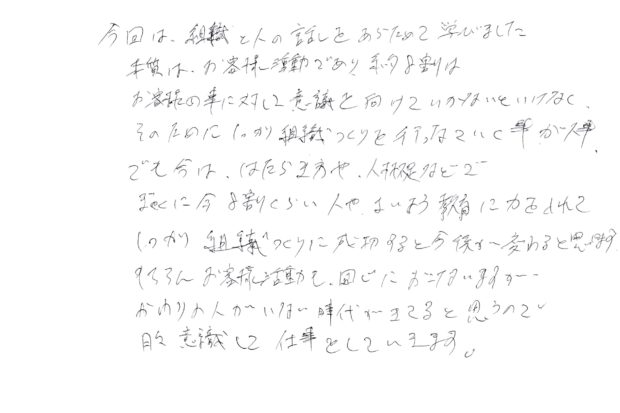 今回は、組織と人の話しをあらためて学びました
本質は、お客様活動であり 約8割は
お客様の事に対して意識を向けていかないといけなく、
そのためにしっかり組織づくりを行なっていく事が大事、
でも今は、はたらき方や、人材不足などで
ぎゃくに今8割くらい人や さいよう 教育に力を入れて
しっかり組織づくりに成功すると今後が変わると思います
もちろんお客様活動も、同じにおこないますが、
かわりの人がいない時代がきてると思うので
日々意識して仕事をしていきます。